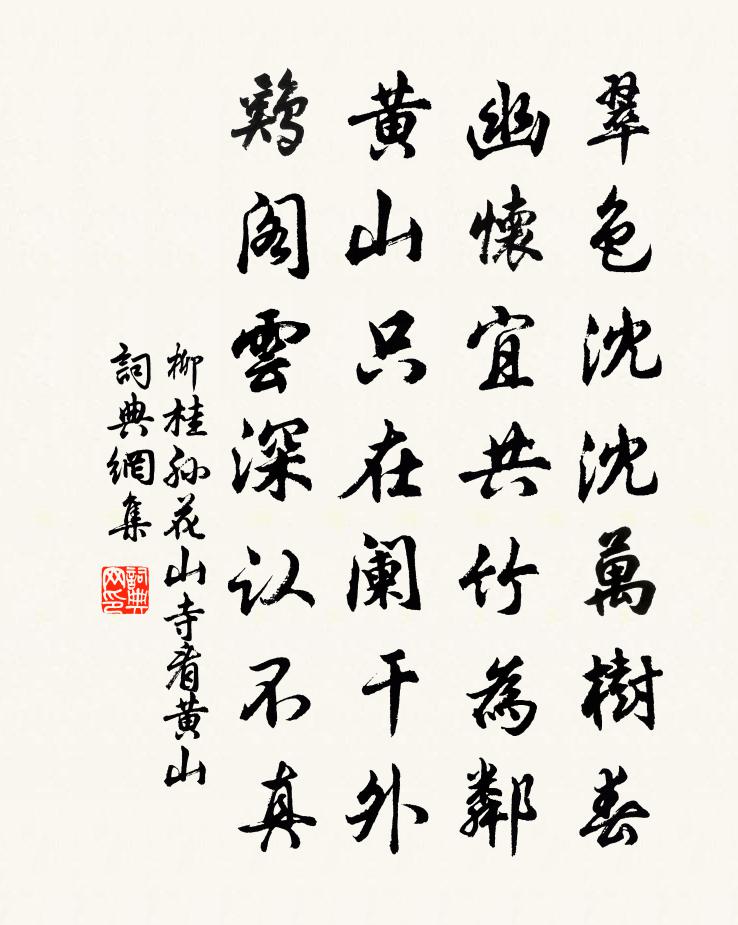 翠色沈沈萬樹春
幽懷宜共竹為鄰
黃山只在闌干外
鷄阁雲深认不真
柳桂孙花山寺看黃山
詞典網集
詞典
网印